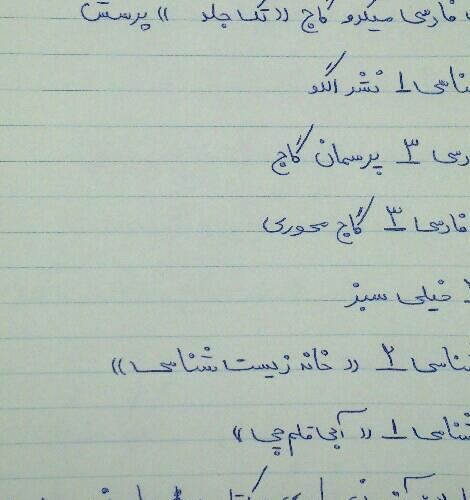 فارسی میکرو گاج «تک جلد» پرسش
شناسی 1 نشر الگو
رسی 3 پرسمان گاج
فارسی 3 گاج محوری
خیلی سبز
شناسی 2 «خانه زیست شناسی»
شناسی 1 «آبی قلم چی»